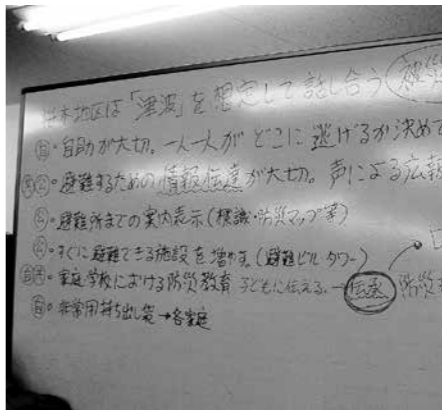 本地区は「津波」を想定して話し合う 被災
自・自助が大切。一人一人がどこに逃げるか決めて
共公・避難するための情報伝達が大切。声による広報
公・避難所までの案内表示(標識・防災マップ等)
公・すぐに避難できる施設を増やす。(避難ビル・タワー)
自共・家庭学校における防災教育 子どもに伝える。→伝承 防災
自・非常用持ち出し袋→各家庭